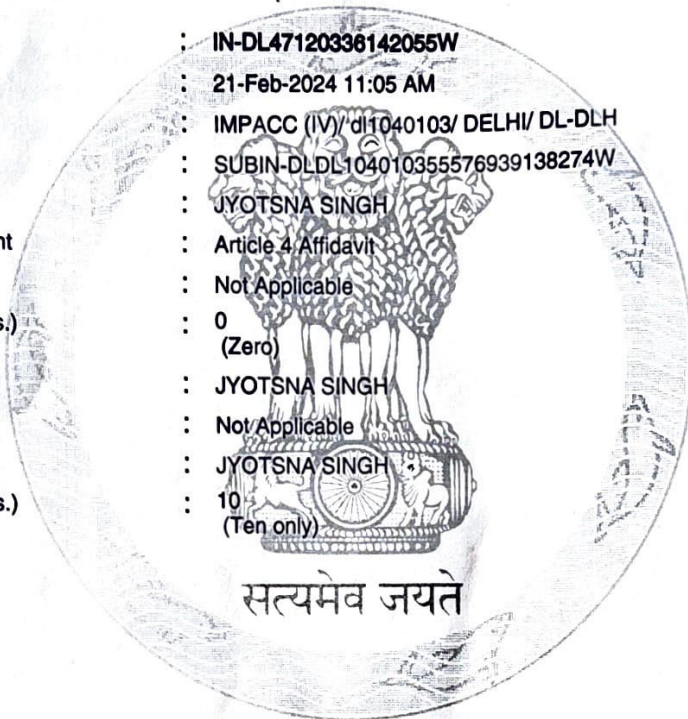 : IN-DL47120336142055W
: 21-Feb-2024 11:05 AM
: IMPACC (IV)/ dl1040103/ DELHI/ DL-DLH
: SUBIN-DLDL104010355576939138274W
: JYOTSNA SINGH
nt : Article 4 Affidavit
: Not Applicable
s.) : 0
(Zero)
: JYOTSNA SINGH
: Not Applicable
: JYOTSNA SINGH
s.) : 10
(Ten only)
सत्यमेव जयते